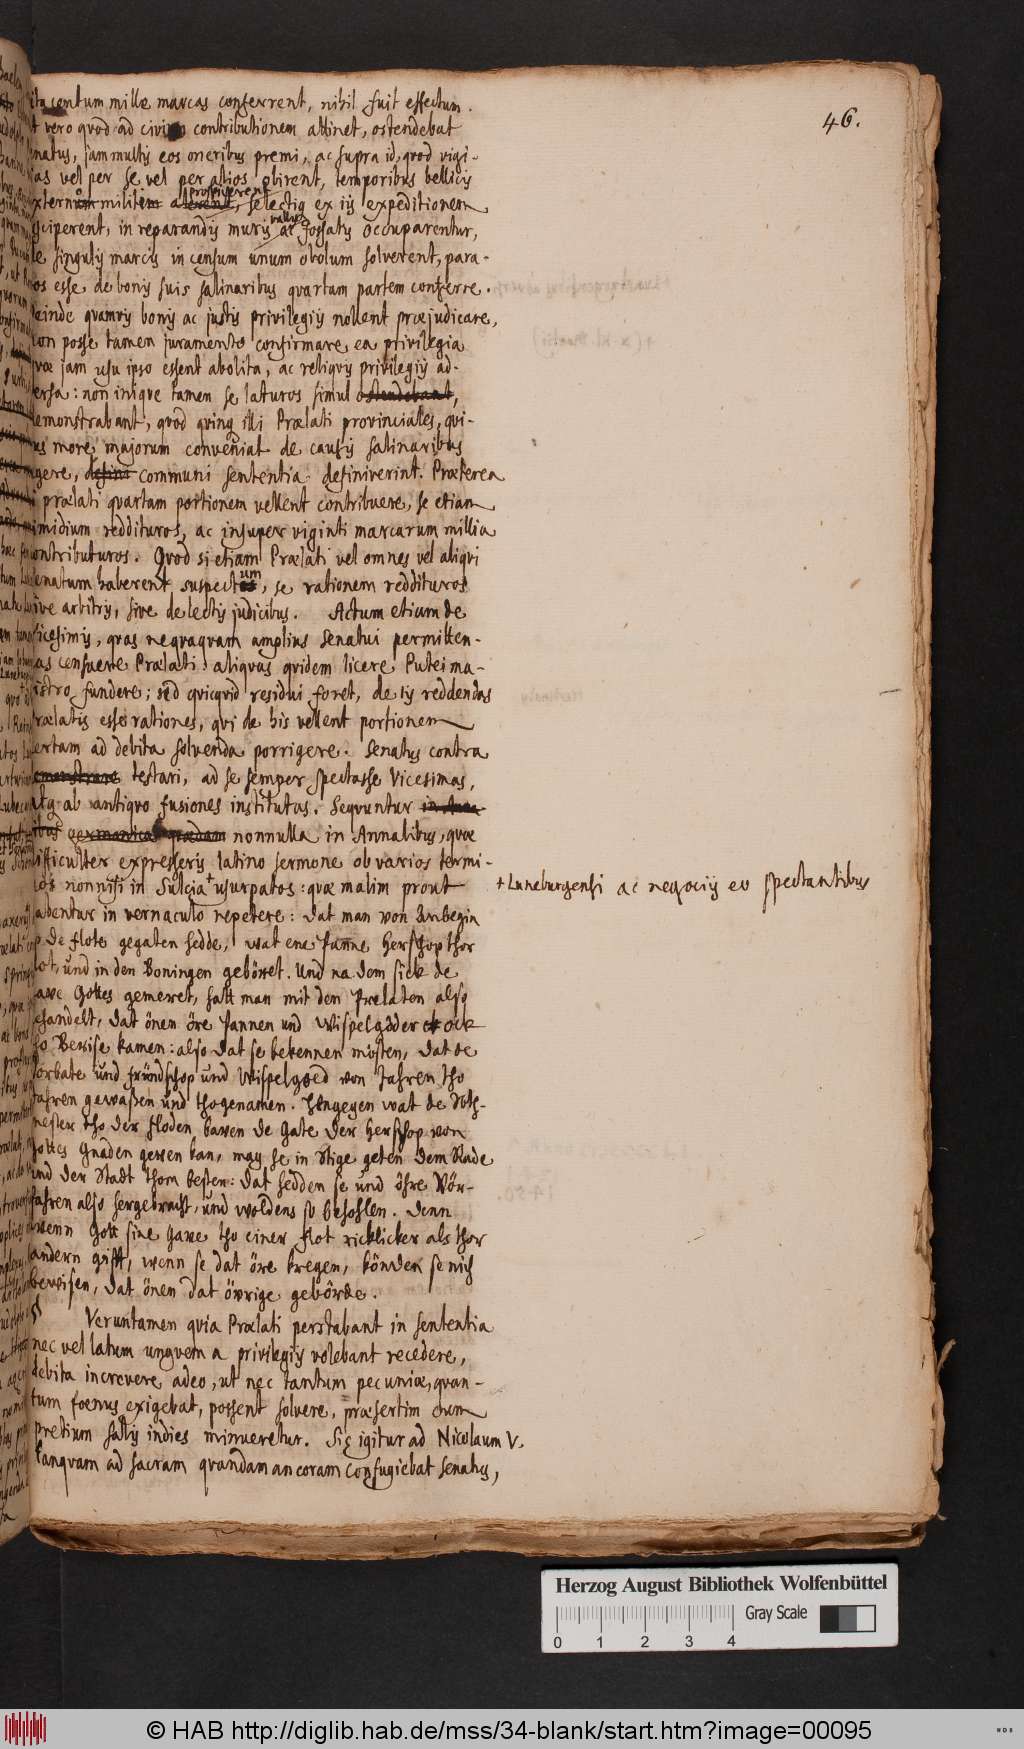 46.
ita centum mille marcas conferrent, nihil fuit effectum.
t vero quod ad civium contributionem attinet, ostendebat
natus, jam multis eos oneribus premi, ac supra id, quod vigi-
ias vel per se vel per alios obirent, temporibus bellicis
prospicerent
xternum militem alerent, selectis ex iis expeditionem
vallis
sciperent, in reparandis muris ac fossatis occuparentur,
de singulis marcis in censum unum obolum solverent, para-
os esse de bonis suis salinaribus quartam partem conferre.
einde quamvis bonis ac justis privilegiis nollent præjudicare,
on posse tamen juramento confirmare ea privilegia
væ jam usu ipso essent abolita, ac reliquis privilegiis ad-
ersa: non inique tamen se laturos simul ostendebant,
emonstrabant, quod quinq illi Prælati provinciales, qui-
us more majorum conveniat de causis salinaribus
gere, defini communi sententia definiverint. Præterea
i prælati quartam portionem vellent contribuere, se etiam
imidium reddituros, ac insuper viginti marcarum millia
ontributuros. Quod si etiam Prælati vel omnes vel aliqui
um
enatum haberent suspectos, se rationem reddituros
ive arbitris, sive delectis judicibus. Actum etiam de
icesimis, quas nequaquam amplius senatui permitten-
as censuere Prælati: aliquas quidem licere Putei ma-
istro fundere; sed quicquid residui foret, de iis reddendas
rælatis esse rationes, qui de his vellent portionem
ertam ad debita solvenda porrigere. Senatus contra
emonstrare testari, ad se semper spectasse Vicesimas,
atq ab antiquo fusiones institutas. Sequuntur in Anna
ibus germanica quædam nonnulla in Annalibus, quæ
ifficulter expresseris latino sermone ob varios termi-
nos nonnisi in Sulcia + usurpatos: quæ malim prout
+ Luneburgensi ac negociis eo spectantibus
abentur in vernaculo repetere: Dat man von Anbegin
p de flote gegaten hedde, wat ene Panne Herschop thor
ot, und in den Boningen geböret. Und na dem sick de
ave Gottes gemeret, hatt man mit den Prelaten also
ehandelt, dat önen öre Pannen und Wispelgöder ock
o Bewise kamen: also dat se bekennen müsten, dat de
orbate und fründschop und Wispelgoed von Jahren tho
ahren gewaßen und thogenamen. Hengegen wat de Soth-
mester tho der floden baven de Gate der Herschop von
ottes Gnaden geven kan, mag he in Stige geten dem Rade
und der Stadt thom besten: dat hedden se und öhre Vör-
fahren also hergebracht, und woldens so beholen. Denn
wenn Gott sine Gave tho einer flot ricklicker als thor
andern gifft, wenn se dat öre kregen, könden se nich
bewisen, dat önen dat övrige gebörde.
Veruntamen quia Prælati perstabant in sententia
nec vel latum unguem a privilegiis volebant recedere,
debita increvere adeo, ut nec tantum pecuniæ, quan-
tum foenus exigebat, possent solvere, præsertim cum
pretium salis indies minueretur. Sic igitur ad Nicolaum V.
tanquam ad sacram quandam ancoram confugiebat senatus,
Herzog August Bibliothek Wolfenbüttel
Gray Scale
0 1 2 3 4
© HAB http://diglib.hab.de/mss/34-blank/start.htm?image=00095